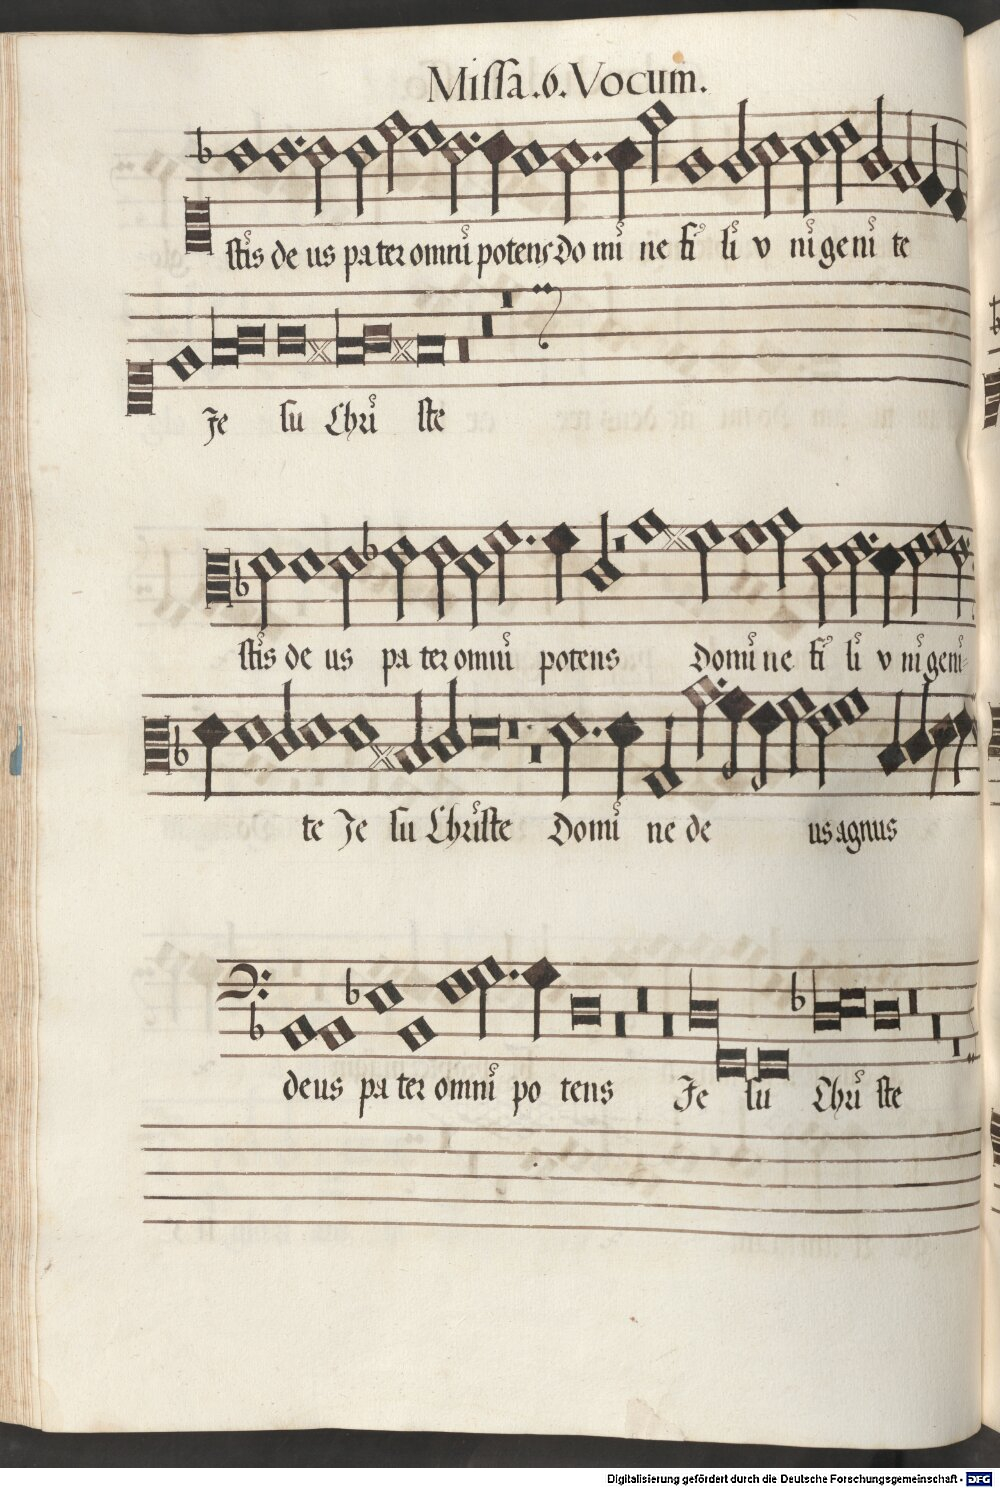 Missa.6.Vocum.
stis de us pater omni potens Do mi ne fi li v ni geni te
Je su Chri ste
stis de us pa ter omni potens Domi ne fi li v ni geni=
te Je su Christe Domi ne de us agnus
deus pa ter omni po tens Je su Chri ste
Digitalisierung gefördert durch die Deutsche Forschungsgemeinschaft - DFG